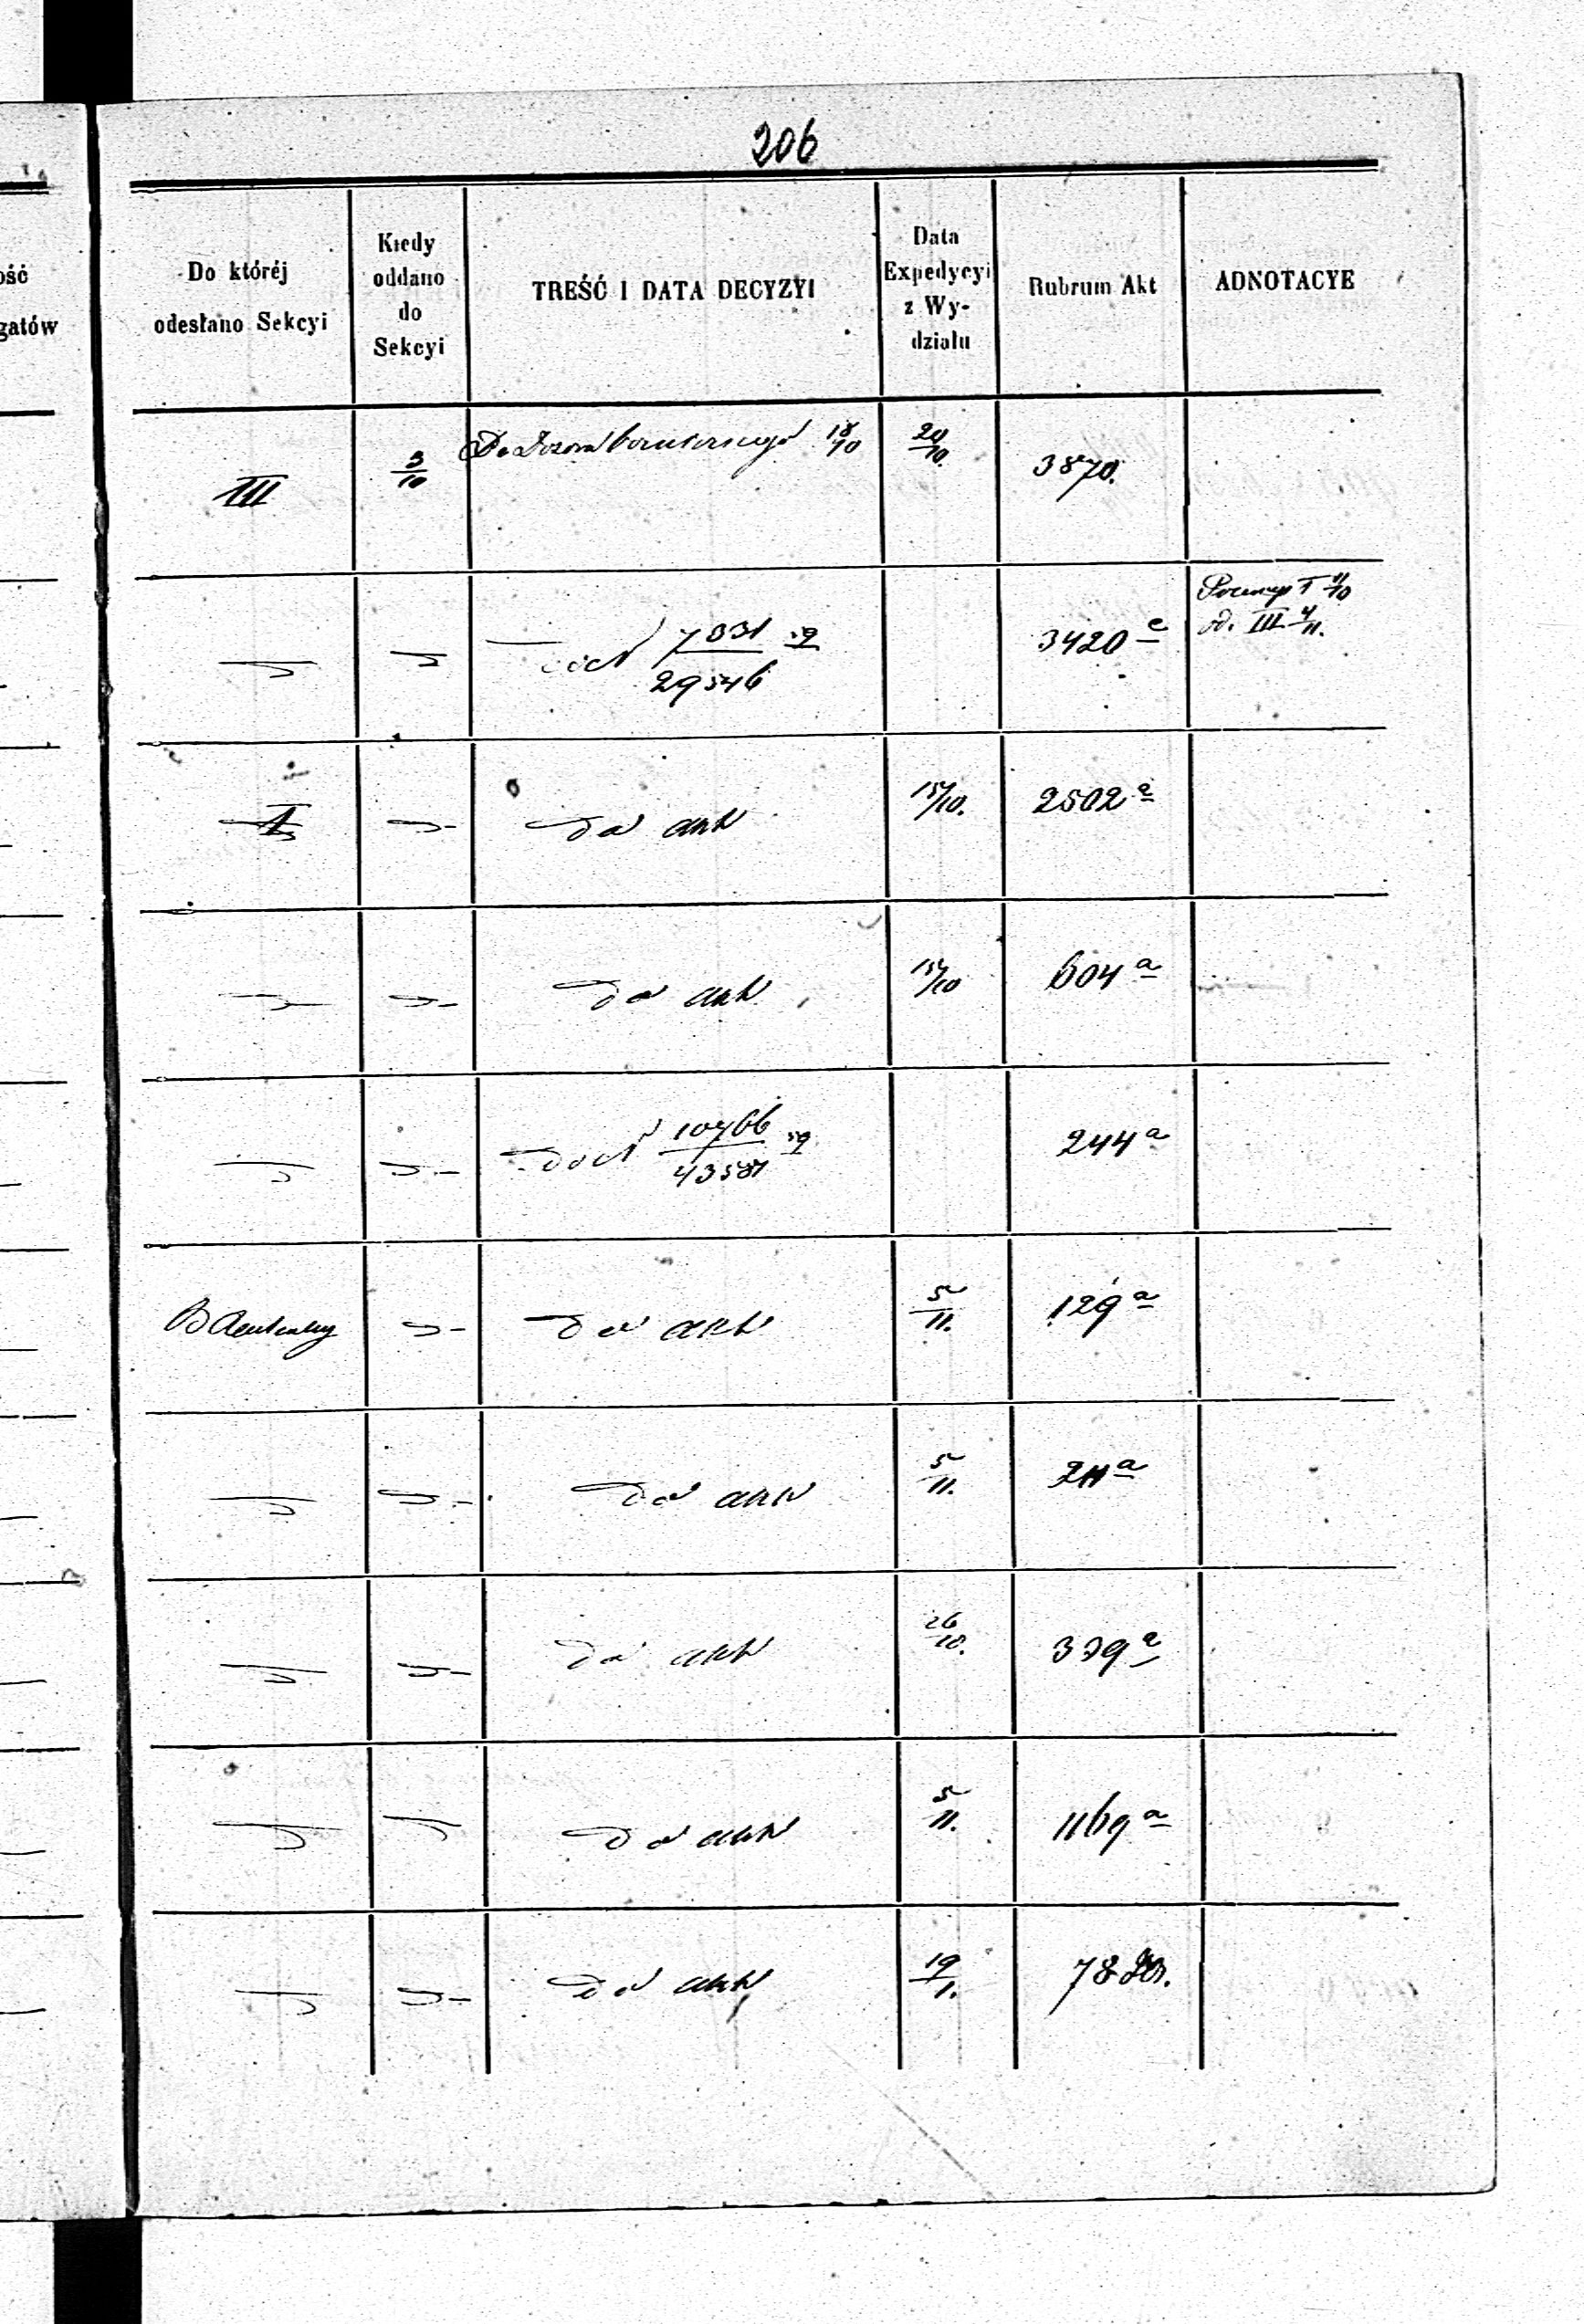 206
ość
gatów
Do któréj
odesłano Sekcyi
Kiedy
oddano
do
Sekcyi
TREŚĆ I DATA DECYZYI
Data
Expedycyi
z Wy-
działu
Rubrum Akt
ADNOTACYE
III 3/10 Do 18/10 20/10. 3870.
T 11/10
3420 e od. III 4/11.
7331
29546
I do akt 15/10. 2502 a
do akt 15/10 604 a
10766 244 a
do akt 5/11. 129 a
do akt 5/11. 211 a
do akt 26/10. 339 a
do akt 5/11. 1169 a
do akt 19/1. 78